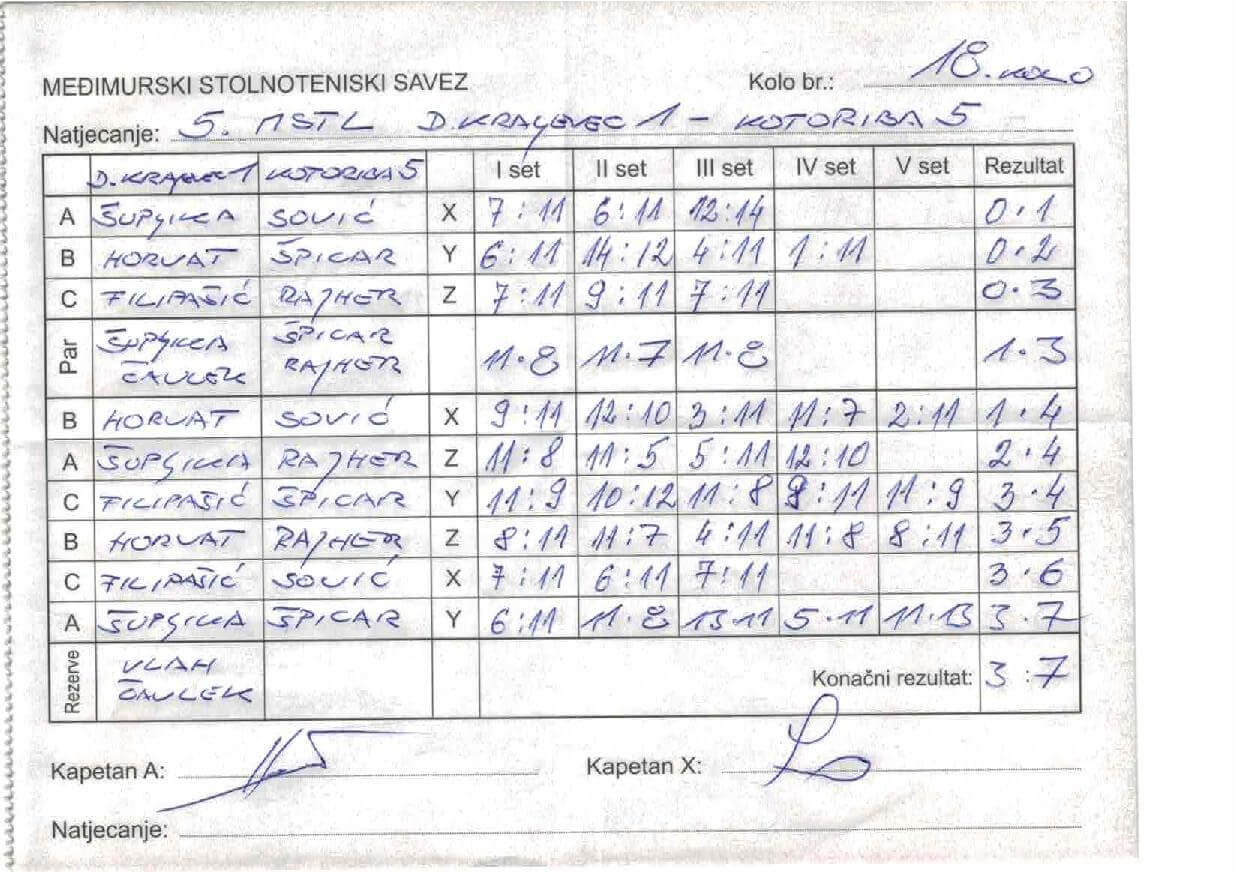 MEĐIMURSKI STOLNOTENISKI SAVEZ Kolo br.: 18. KOLO
Natjecanje: 5. MSTL D.KRALJEVEC 1 - KOTORIBA 5
D.KRALJEVEC 1 KOTORIBA 5 I set II set III set IV set V set Rezultat
A ŠUPLJIKA SOVIĆ X 7:11 6:11 12:14 0.1
B HORVAT ŠPICAR Y 6:11 14:12 4:11 1:11 0.2
C FILIPAŠIĆ RAJHER Z 7:11 9:11 7:11 0.3
Par ŠUPLJIKA ČAVLEK ŠPICAR RAJHER 11.8 11.7 11.8 1.3
B HORVAT SOVIĆ X 9:11 12:10 3:11 11:7 2:11 1.4
A ŠUPLJIKA RAJHER Z 11:8 11:5 5:11 12:10 2.4
C FILIPAŠIĆ ŠPICAR Y 11:9 10:12 11:8 9:11 11:9 3.4
B HORVAT RAJHER Z 8:11 11:7 4:11 11:8 8:11 3.5
C FILIPAŠIĆ SOVIĆ X 7:11 6:11 7:11 3.6
A ŠUPLJIKA ŠPICAR Y 6:11 11.8 13.11 5.11 11.13 3.7
Rezerve VLAH
ČAVLEK Konačni rezultat: 3:7
Kapetan A: Kapetan X:
Natjecanje: